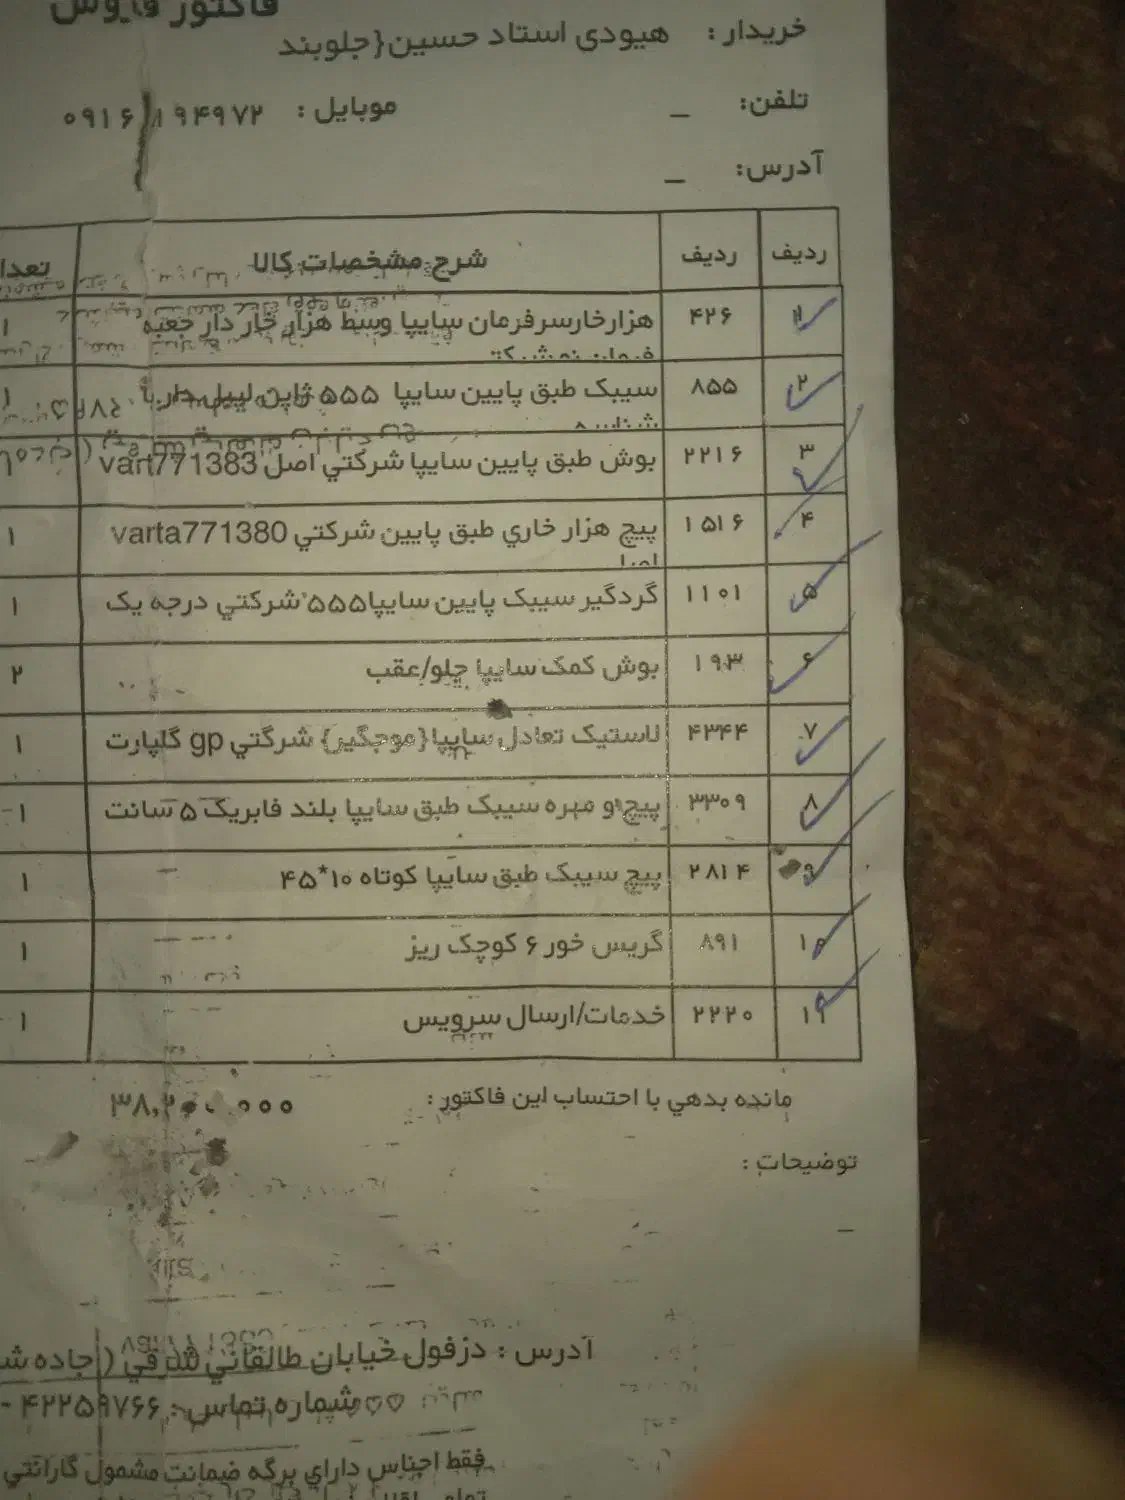 فاکتور فروش
خریدار : هیودی استاد حسین{جلوبند
تلفن: _ موبایل : ۰۹۱۶۱۱۹۴۹۷۲
آدرس: _
ردیف ردیف شرح مشخصات کالا تعدا
۱ ۴۲۶ هزارخارسرفرمان سایپا وسط هزار خار دار جعبه ۱
۲ ۸۵۵ سیبک طبق پایین سایپا ۵۵۵ ژاپن لیبل دار با ۱
۳ ۲۲۱۶ بوش طبق پایین سایپا شرکتي اصل vart771383
۴ ۱۵۱۶ پیچ هزار خاري طبق پایین شرکتي varta771380 ۱
اصل
۵ ۱۱۰۱ گردگیر سیبک پایین سایپا۵۵۵ شرکتي درجه یک ۱
۶ ۱۹۳ بوش کمک سایپا جلو/عقب ۲
۷ ۴۳۴۴ لاستیک تعادل سایپا{موجگیر} شرگتي gp گلپارت ۱
۸ ۳۳۰۹ پیچ و مهره سیبک طبق سایپا بلند فابریک ۵ سانت ۱
۹ ۲۸۱۴ پیچ سیبک طبق سایپا کوتاه ۱۰*۴۵ ۱
۱۰ ۸۹۱ گریس خور ۶ کوچک ریز ۱
۱۱ ۲۲۲۰ خدمات/ارسال سرویس ۱
مانده بدهي با احتساب این فاکتور : ۳۸,۲۰۰,۰۰۰
توضیحات :
_
آدرس : دزفول خیابان طالقاني شرقي ( جاده ش
شماره تماس : ۴۲۲۵۹۷۶۶ -
فقط اجناس داراي برگه ضمانت مشمول گارانتي